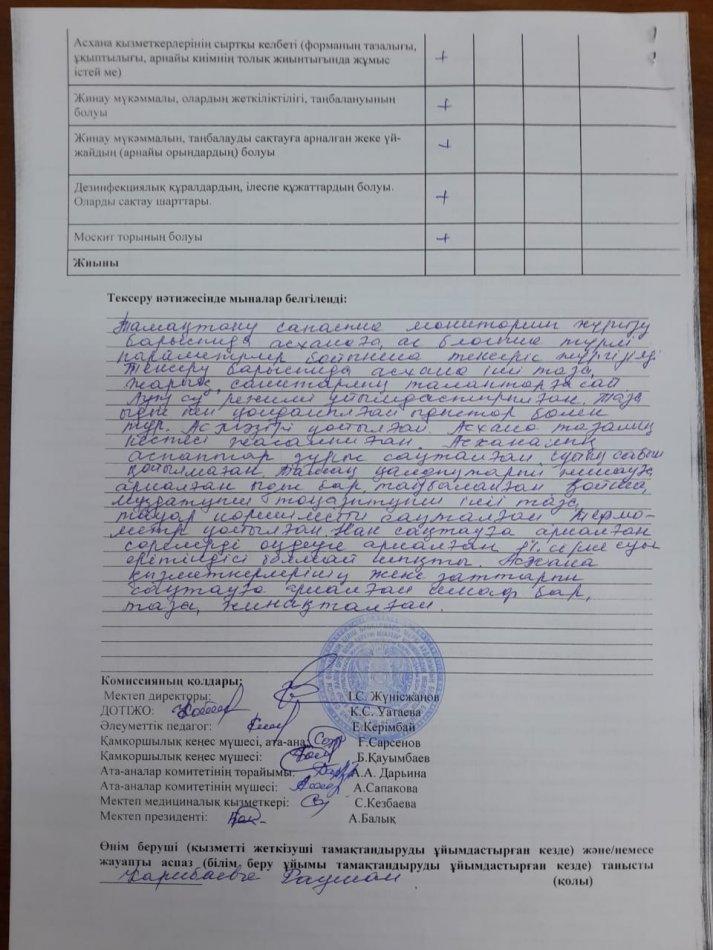 Асхана қызметкерлерінің сыртқы келбеті (форманың тазалығы,
ұқыптылығы, арнайы киімнің толық жиынтығында жұмыс
істей ме)
+
Жинау мүкәммалы, олардың жеткіліктілігі, таңбалануының
болуы
+
Жинау мүкәммалын, таңбалауды сақтауға арналған жеке үй-
жайдың (арнайы орындардың) болуы
+
Дезинфекциялық құралдардың, ілеспе құжаттардың болуы.
Оларды сақтау шарттары.
+
Москит торының болуы
+
Жиыны
Тексеру нәтижесінде мыналар белгіленді:
Тамақтану сапасына мониторинг жүргізу
барысында асханаға, ас блогына түрлі
параметрлер бойынша тексеріс жүргізілді
Тексеру барысында асхана іші таза,
жарық, санитарлық талаптарға сай
Ауыз су режимі ұйымдастырылған. Таза
ыдыс пен қолданылған ыдыстар бөлек
тұр. Ас мәзірі қойылған. Асхана тазалық
кестесі жасалынған. Асханалық
аспаптар дұрыс сақталған, сұйық сабын
қойылмаған. Тамақ қалдықтарын жинауға
арналған ыдыс бар таңбаланған қойма,
мұздатқыш тоңазытқыш іші таза,
тауар көршілестігі сақталған термо-
метр қойылған. Нан сақтауға арналған
сөрелерді өңдеуге арналған 1% сірке суы
ерітіндісі болмай шықты. Асхана
қызметкерлерінің жеке заттарын
сақтауға арналған шкаф бар,
таза, жинақталған.
Комиссияның қолдары:
Мектеп директоры: І.С. Жүнісжанов
ДОТІЖО: К.С. Уатаева
Әлеуметтік педагог: Е.Керімбай
Қамкоршылық кеңес мүшесі, ата-ана: Ғ.Сарсенов
Қамкоршылық кеңес мүшесі: Б.Қауымбаев
Ата-аналар комитетінің төрайымы: А.А. Дарьина
Ата-аналар комитетінің мүшесі: А.Сапакова
Мектеп медициналық қызметкері: С.Кезбаева
Мектеп президенті: А.Балық
Өнім беруші (қызметті жеткізуші тамақтандыруды ұйымдастырған кезде) және/немесе
жауапты аспаз (білім беру ұйымы тамақтандыруды ұйымдастырған кезде) танысты
Карибаева Раушан (қолы)